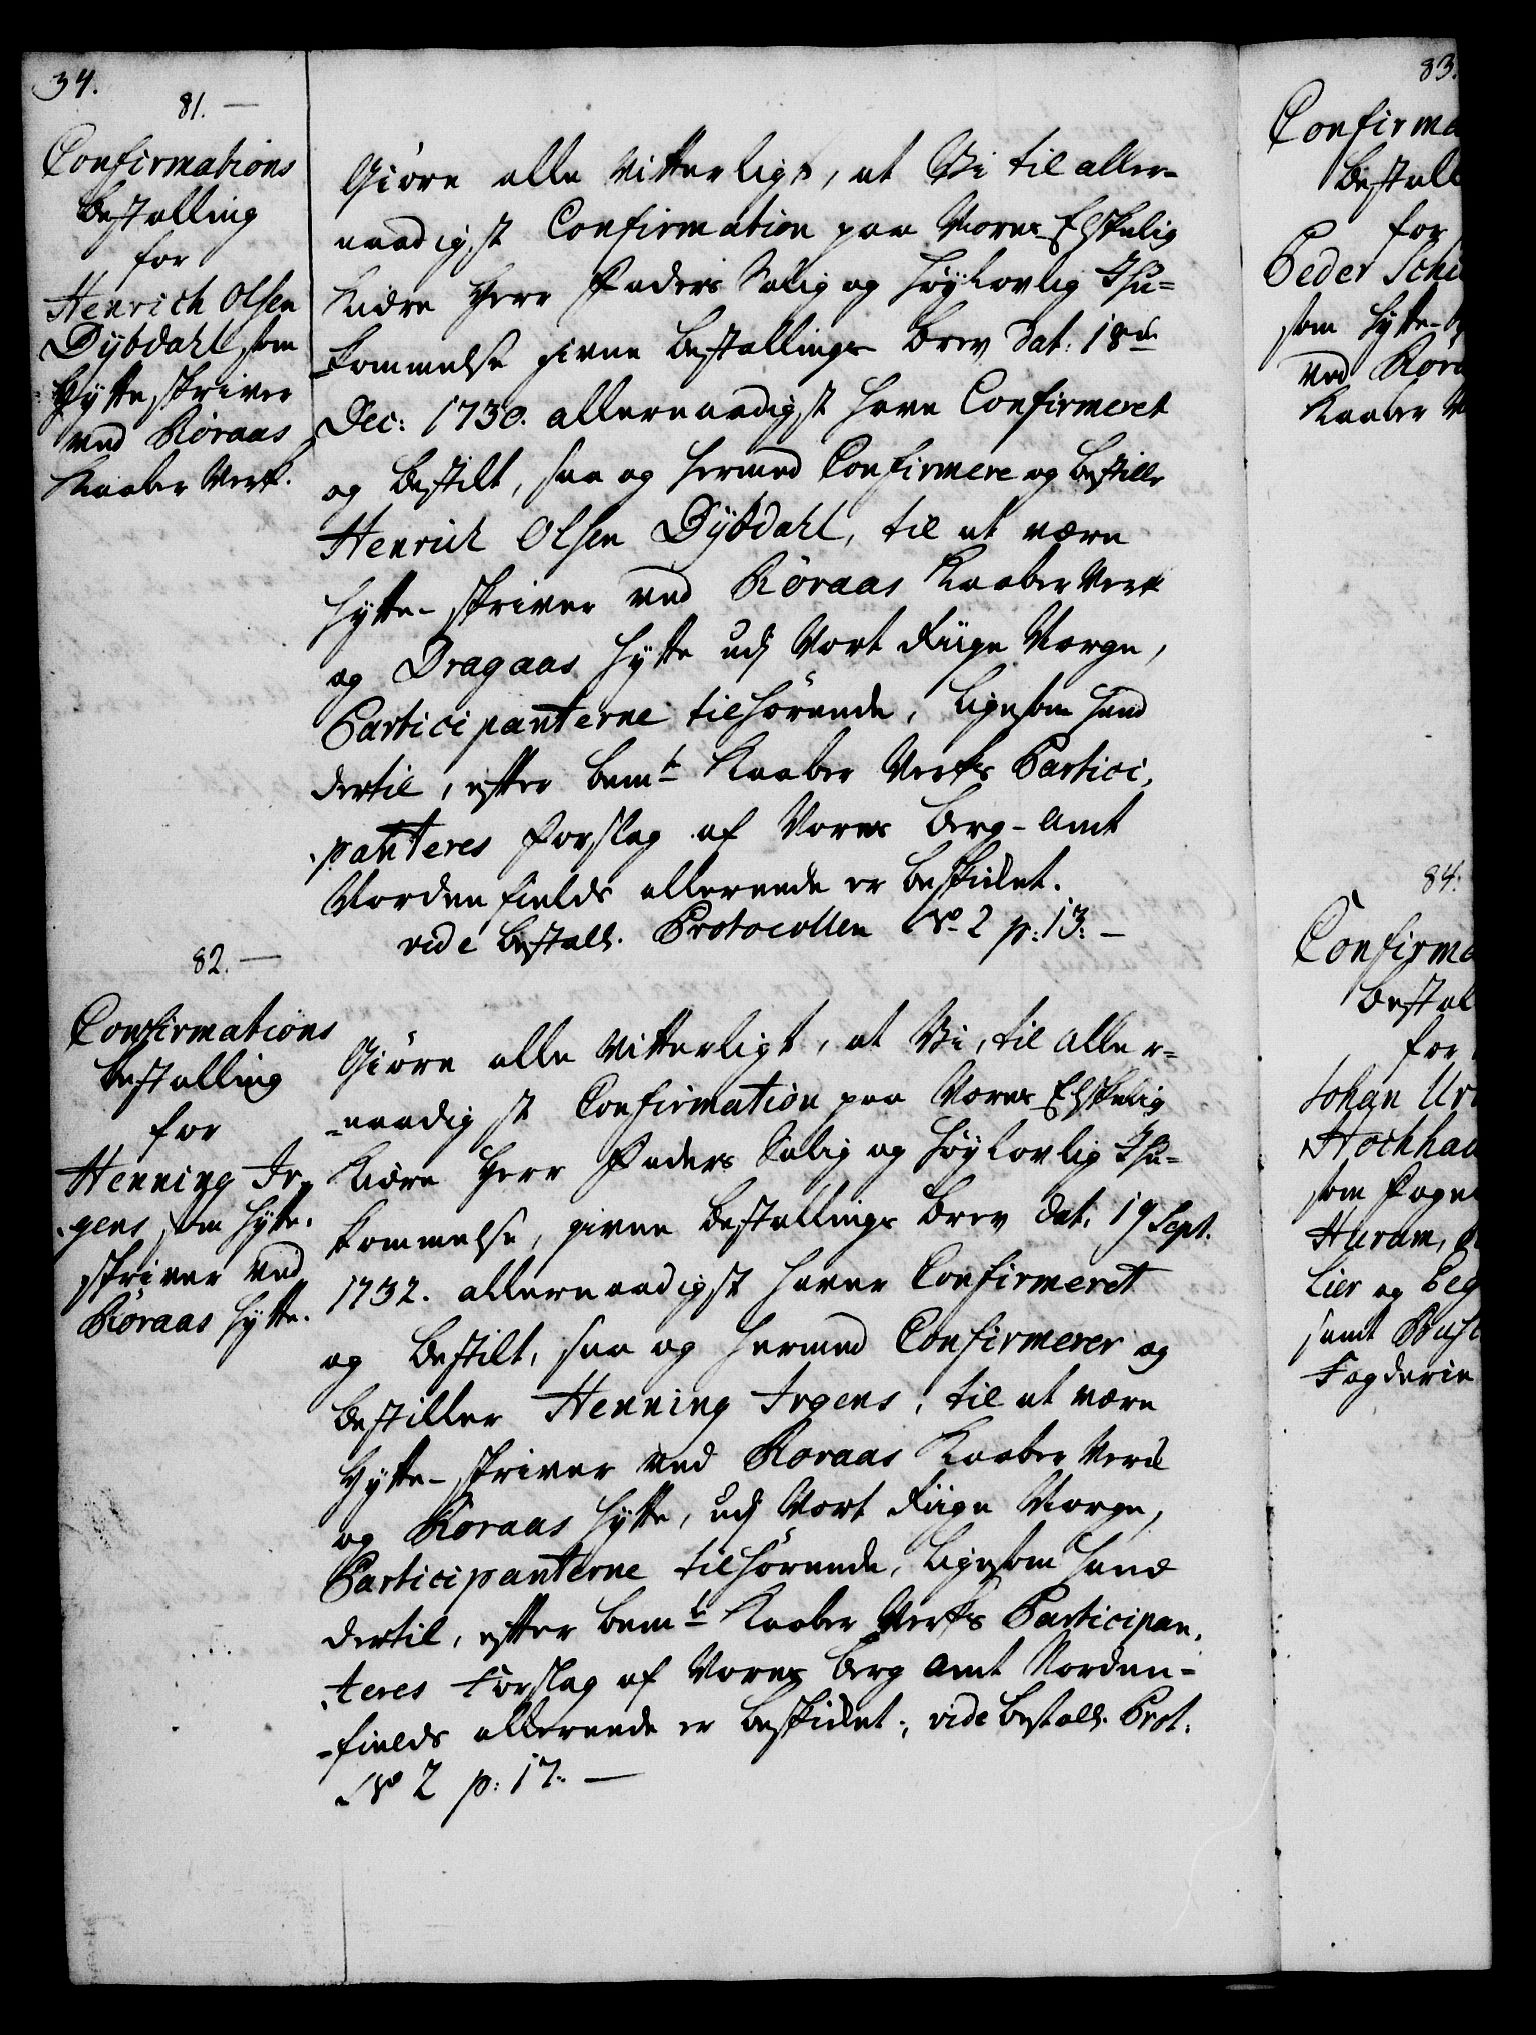 34.
81. —
Confirmations
Bestalling
for
Henrich Olsen
Dybdahl som
Hytteskriver
ved Röraas
Kaaber Verk.
Giöre alle vitterligt, at Vi til aller-
naadigst Confirmation paa Vores Elskelig
Kiære Herr Faders Salig og Høylovlig Ihu-
kommelse givne Bestallings Brev dat: 18de
Dec: 1730. allernaadigst have Confirmeret
og bestilt, saa og hermed Confirmere og bestille
Henrich Olsen Dybdahl, til at være
Hytte-skriver ved Röraas Kaaber Verk
og Dragaas Hytte udj Vort Riige Norge,
Participanterne tilhörende, ligesom hand
dertil, efter bemte Kaaber Verks Partici,
panteres Forslag af Vores Berg-Amt
Nordenfields allereede er beskicket.
vide Bestall. Protocollen No 2 p: 13. —
82. —
Confirmations
Bestalling
for
Henning Ir,,
gens som Hytte.
skriver ved
Röraas Hytte.
Giöre alle vitterligt, at Vi, til aller-
-naadigst Confirmation paa Vores Elskelig
Kiære Herr Faders Salig og Høylovlig Ihu-
kommelse, givne Bestallings Brev dat. 19 Sept.
1732. allernaadigst haver Confirmeret
og bestilt, saa og hermed Confirmerer og
bestiller Henning Irgens, til at være
Hytte-skriver ved Roraas Kaaber Verck
og Röraas Hytte, udj Vort Riige Norge,
Participanterne tilhörende, ligesom hand
dertil, efter bemte Kaaber Verks Participan,
teres Forslag af Vores Berg Amt Norden-
-fields allereede er beskicket; vide Bestall. Prot.
No 2 p: 17. —
83.
Confirma
Bestall
for
Peder Schi
som Hytte-
ved Röra
Kaaber V
84.
Confirma
Bestal
for
Johan Ur
Hochhau
som Foged
Hurum,
Lier og Eeg
samt Busk
Fogderie